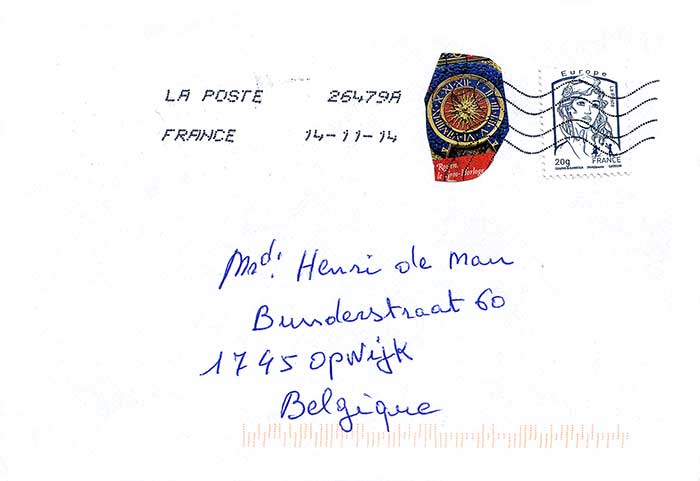 LA POSTE 26479A
FRANCE 14-11-14
Europe
La Poste
20g FRANCE
Rouen
le Gros-Horloge
Mrd. Henri de Man
Bunderstraat 60
1745 Opwijk
Belgique